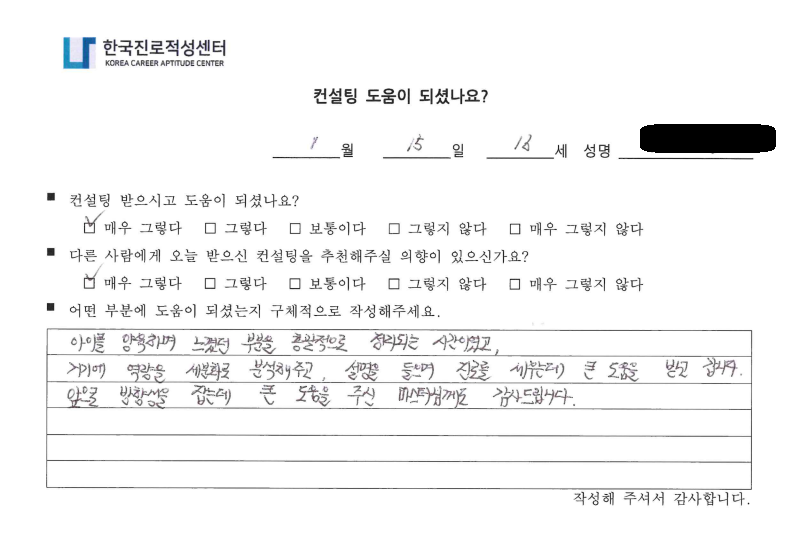 한국진로적성센터
KOREA CAREER APTITUDE CENTER
컨설팅 도움이 되셨나요?
1월 15일 18세 성명
■ 컨설팅 받으시고 도움이 되셨나요?
☑ 매우 그렇다 □ 그렇다 □ 보통이다 □ 그렇지 않다 □ 매우 그렇지 않다
■ 다른 사람에게 오늘 받으신 컨설팅을 추천해주실 의향이 있으신가요?
☑ 매우 그렇다 □ 그렇다 □ 보통이다 □ 그렇지 않다 □ 매우 그렇지 않다
■ 어떤 부분에 도움이 되셨는지 구체적으로 작성해주세요.
아이를 양육하며 느꼈던 부분을 총괄적으로 정리되는 시간이었고,
거기에 역량을 세분화로 분석해주고, 설명을 들으며 진로를 세우는데 큰 도움을 받고 갑니다.
앞으로 방향성을 잡는데 큰 도움을 주신 마스터님께도 감사드립니다.
작성해 주셔서 감사합니다.